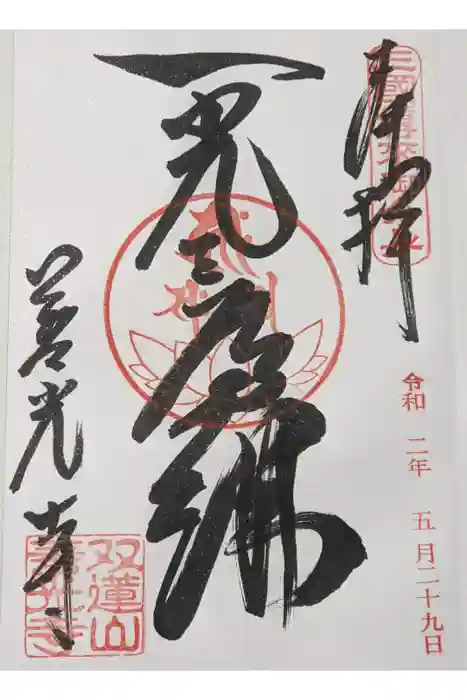 奉拝
三國傳来
令和 二年 五月二十九日
一光三尊佛
善光寺
双蓮山
善光寺